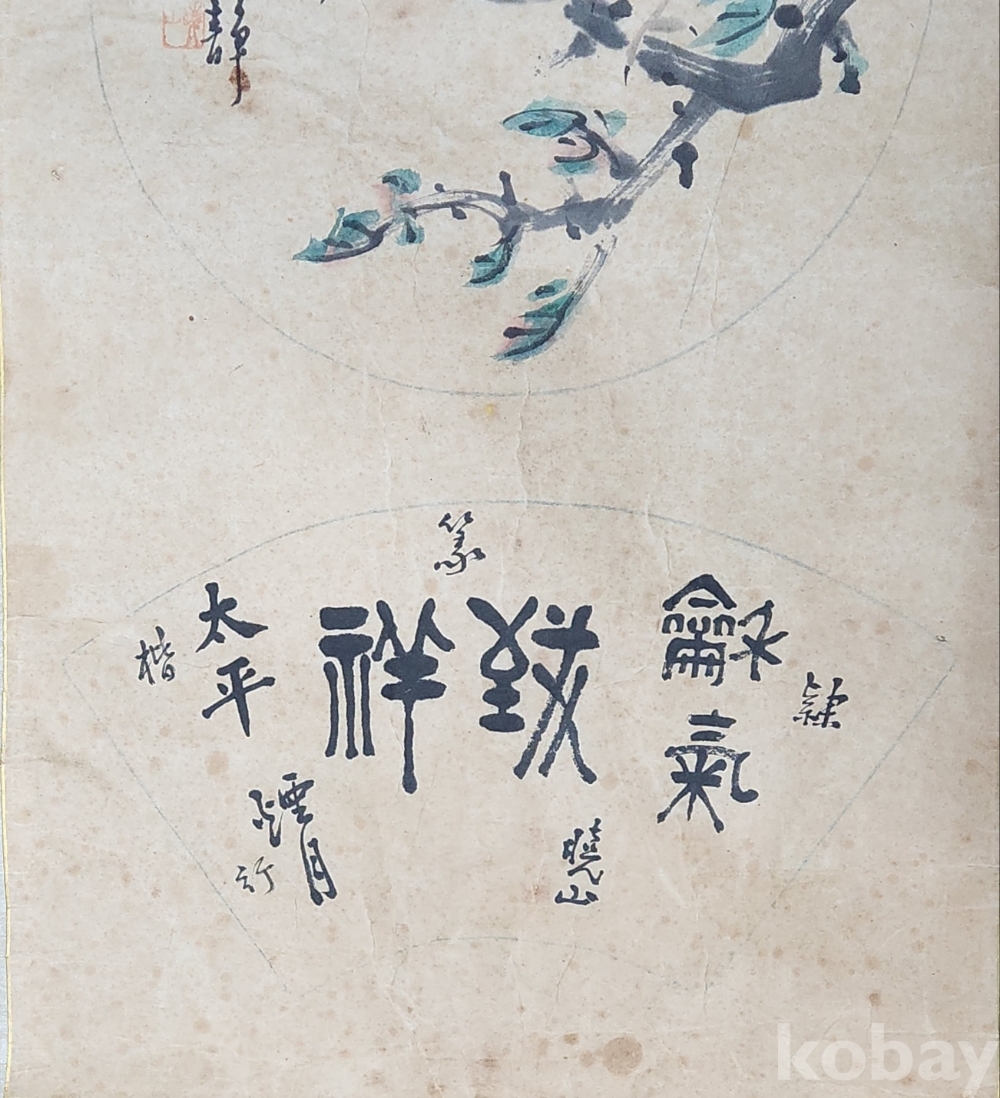 靜
隷
龢氣
篆
致祥
曉山
太平
楷
煙月
行
kobay